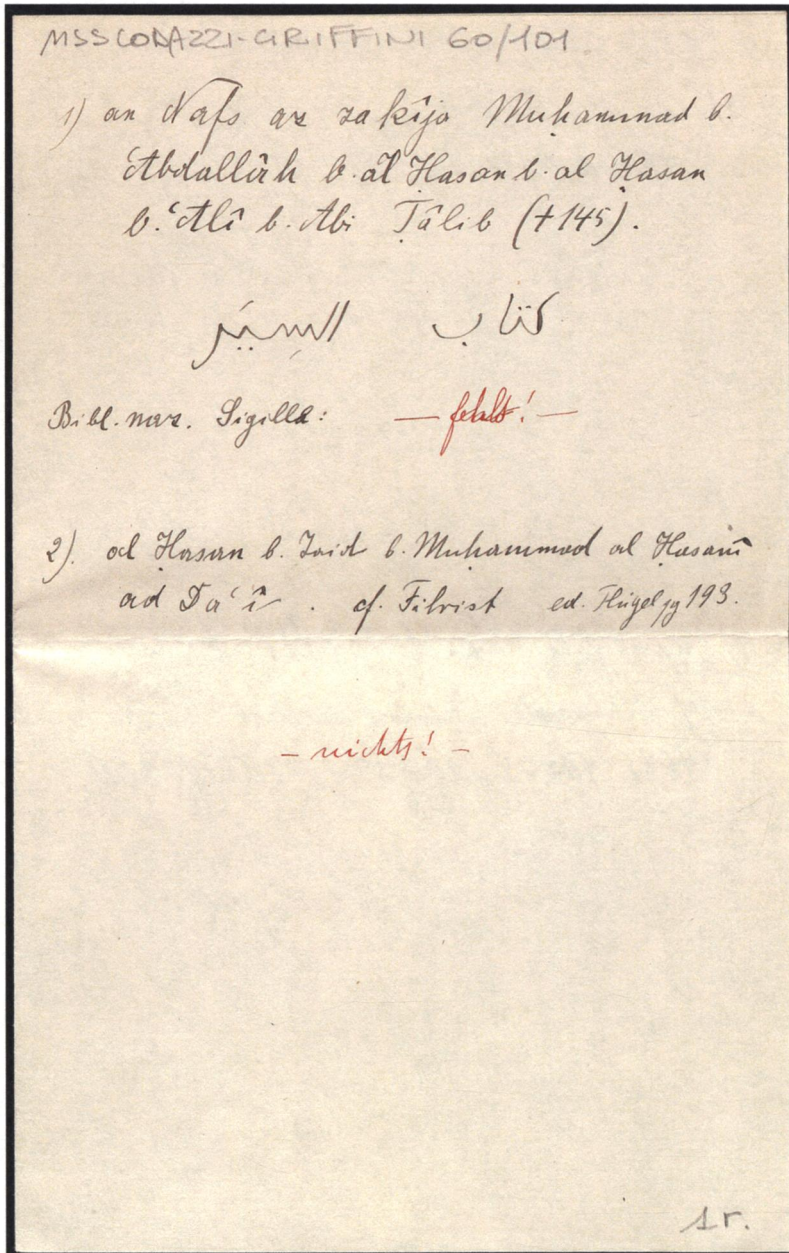 MSS CODAZZI-GRIFFINI 60/101
1) an Nafs az zakîja Muḥammad b.
ʿAbdallâh b. al Ḥasan b. al Ḥasan
b. ʿAlî b. Abi Ṭâlib (†145).
كتاب السِيَر
Bibl. naz. Sigilla: — fehlt! —
2). al Ḥasan b. Zaid b. Muḥammad al Ḥasanî
ad Dâʿî. cf. Fihrist ed. Flügel pg 193.
– nichts! –
1 r.